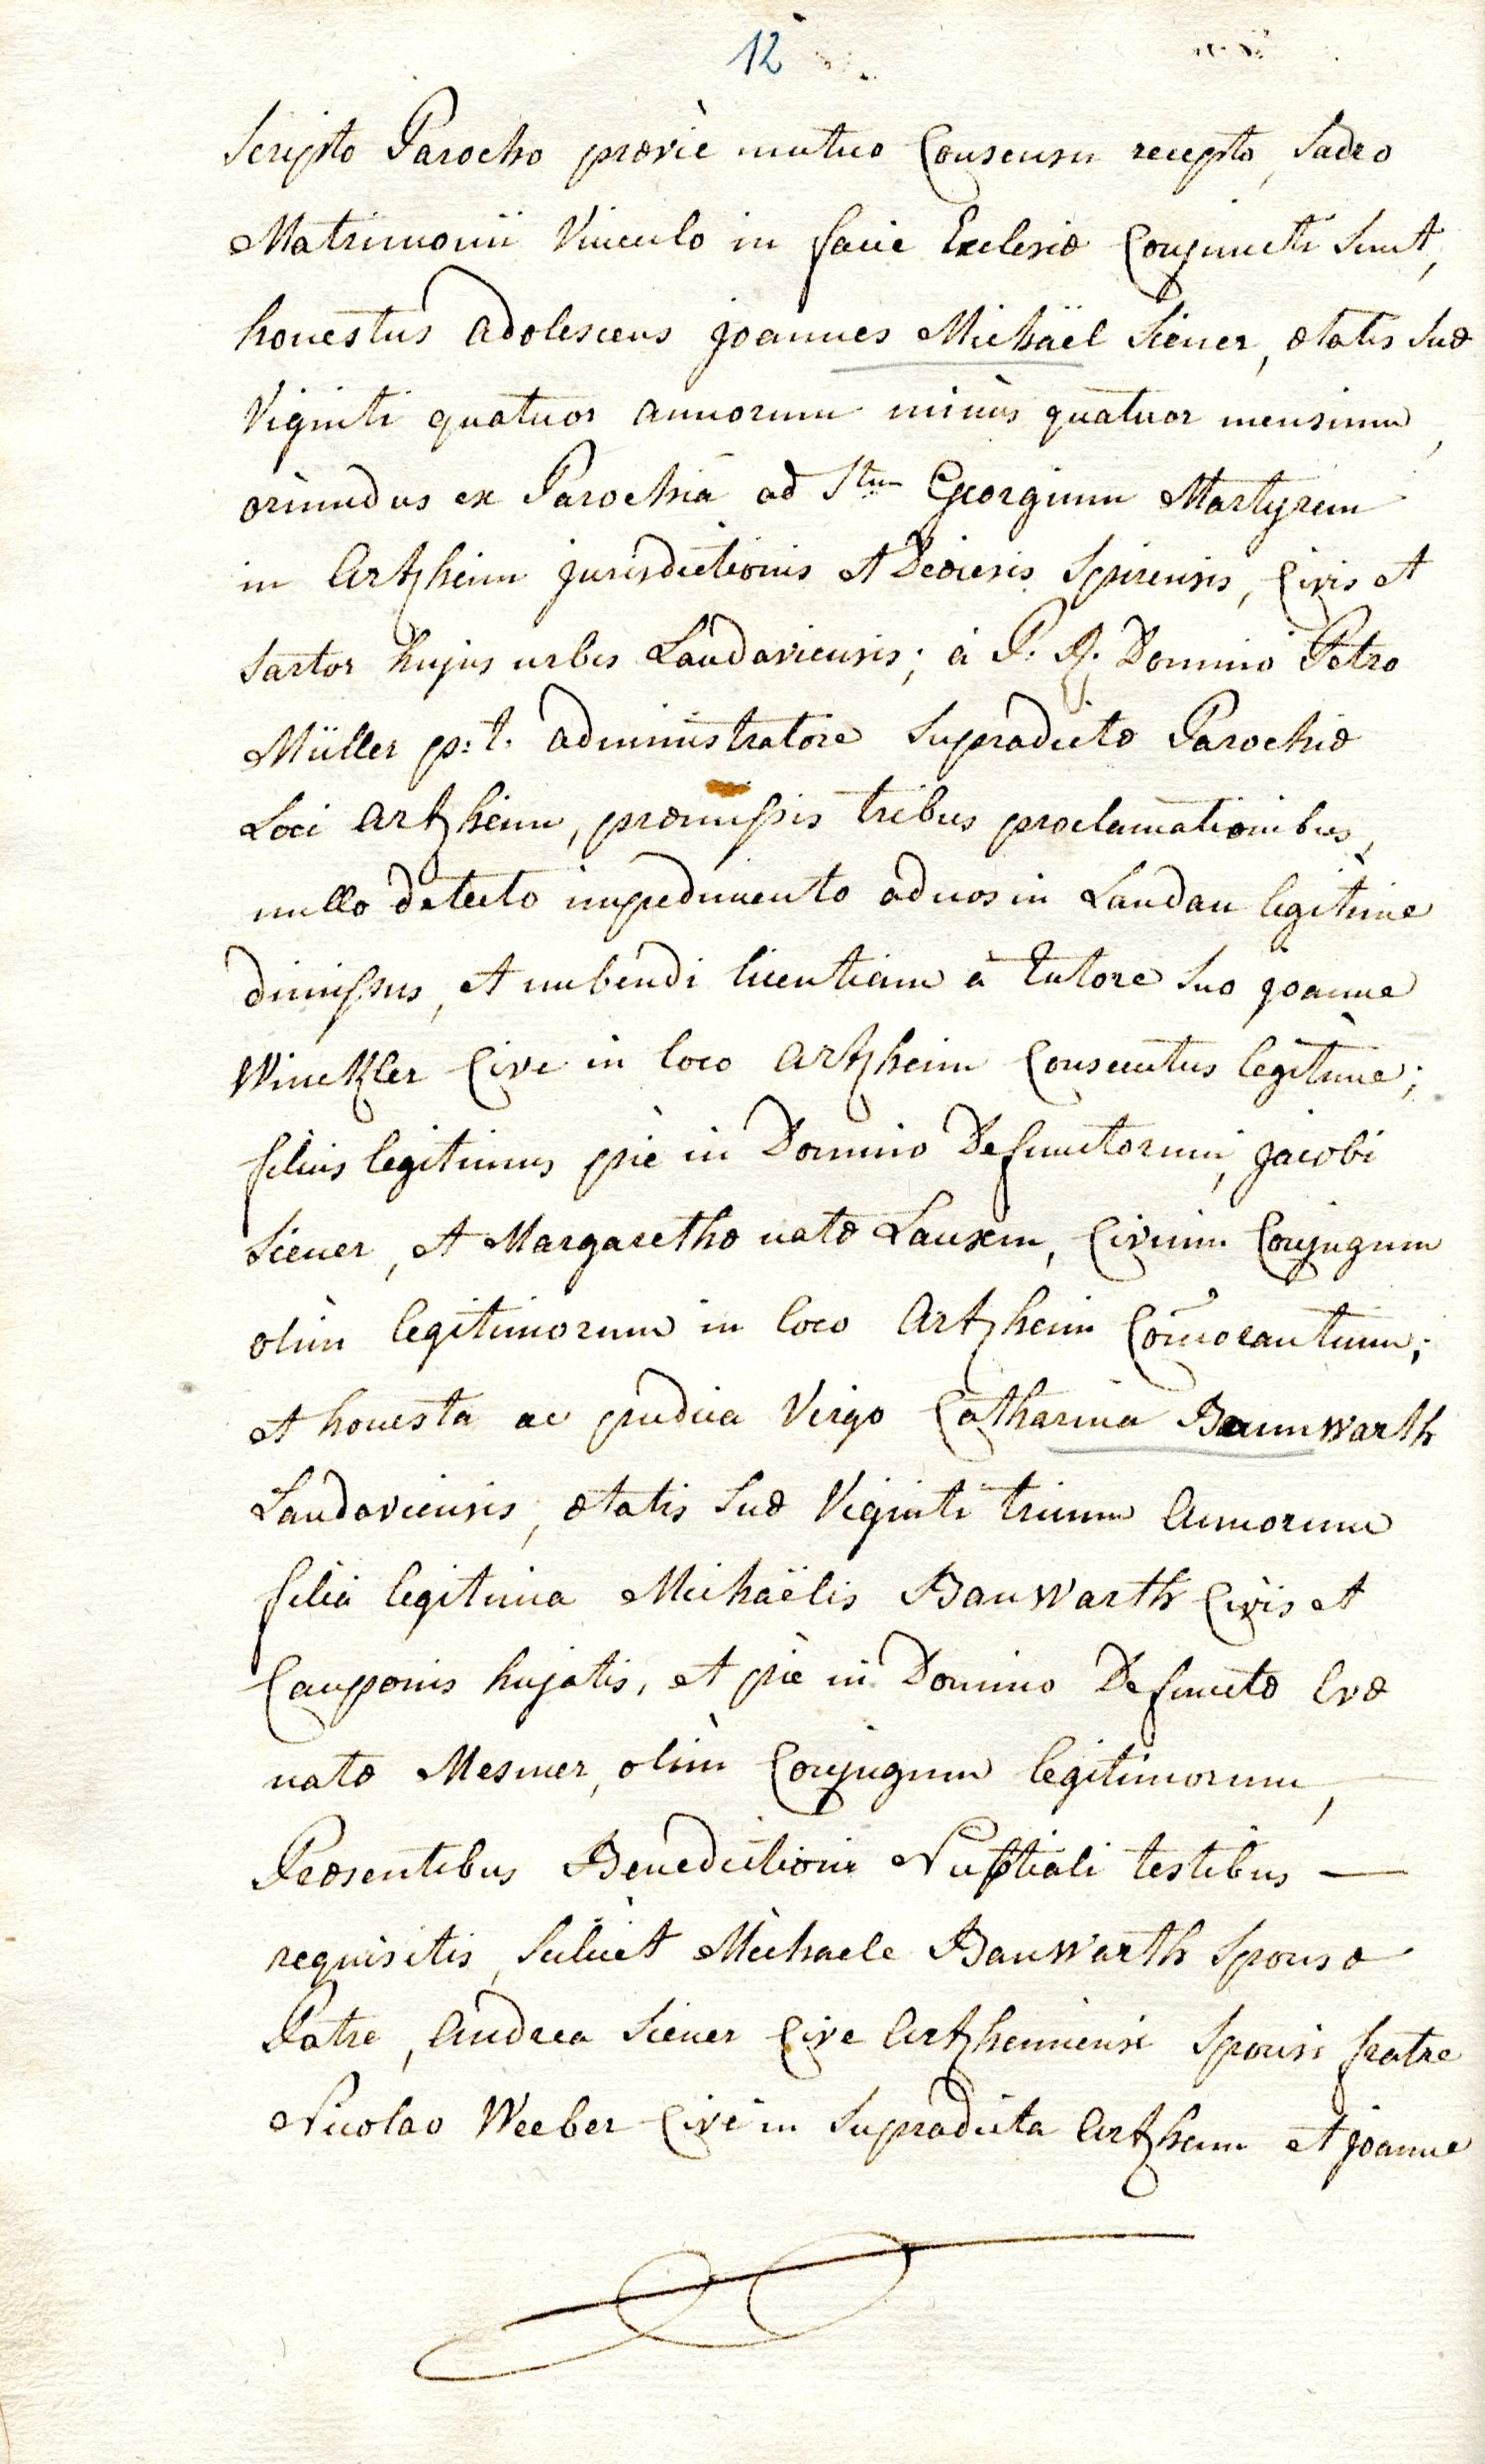 12
Scripto Parocho prævie mutuo Consensu recepto, Sacro
Matrimonii Vinculo in facie Ecclesiæ Conjuncti Sunt,
honestus adolescens joannes Michäel Siener, ætatis suæ
Viginti quatuor annorum minùs quatuor mensium,
oriundus ex Parochiâ ad Stum Georgium Martyrem
in Artzheim jurisdictionis et Diœcesis Spirensis, Civis et
Sartor hujus urbis Landaviensis; à P. R. Domino Petro
Müller p: t. administratore Supradictæ Parochiæ
Loci artzheim, præmissis tribus proclamationibus,
nullo detecto impedimento ad nos in Landau legitime
dimissus, et nubendi licentiam à tutore suo joanne
Winckler Cive in loco artzheim Consecutus legitime;
filius legitimus piè in Domino Defunctorum, jacobi
Siener, et Margarethæ natæ Lauxin, Civium Conjugum
olim legitimorum in loco Artzheim Com̃orantium;
et honesta ac pudica Virgo Catharina Baunwarth
Landaviensis, ætatis suæ Viginti trium Annorum
filia legitima Michaëlis Bauwarth Civis et
Cauponis hujatis, et piè in Domino Defunctæ Evæ
natæ Mesmer, olim Conjugum legitimorum,
Præsentibus Benedictioni Nuptiali testibus —
requisitis, Scilicet Michaele Bauwarth Sponsæ
Patre, Andrea Siener Cive Artzheimiensi Sponsi fratre
Nicolao Weeber Cive in Supradicta Artzheim et joanne